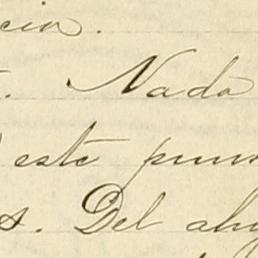 cia.
. Nada
este pun
s. Del ah